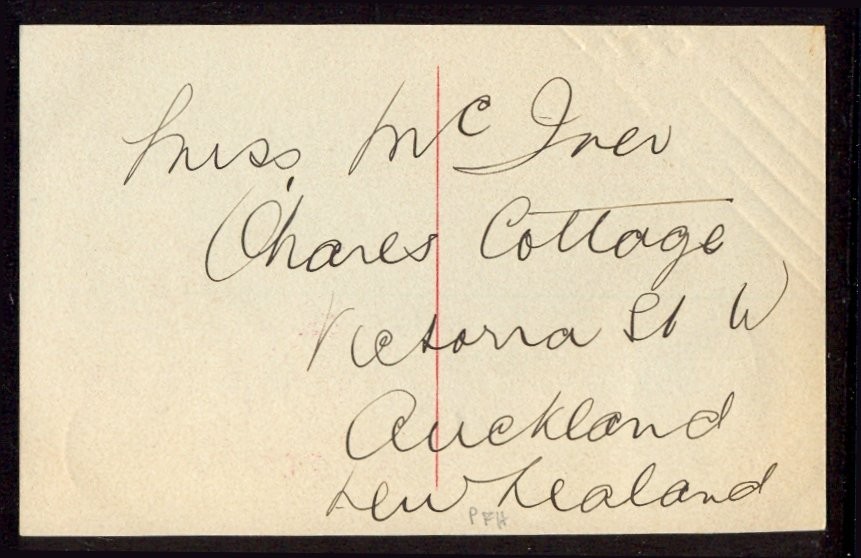 Miss McIver
O'hares Cottage
Victoria St W
Auckland
New Zealand
PFH